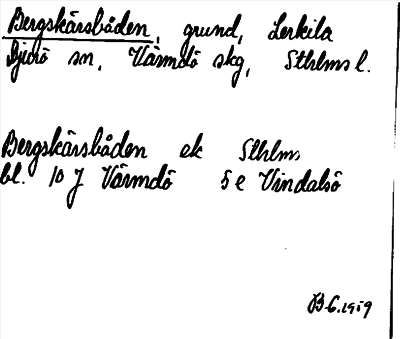 Bergskärsbåden, grund, Lerkila
Djurö sn, Värmdö skg, Sthlms l.
Bergskärsbåden ek Sthlms
bl. 10 J Värmdö 5 e Vindalsö
B.G. 1959